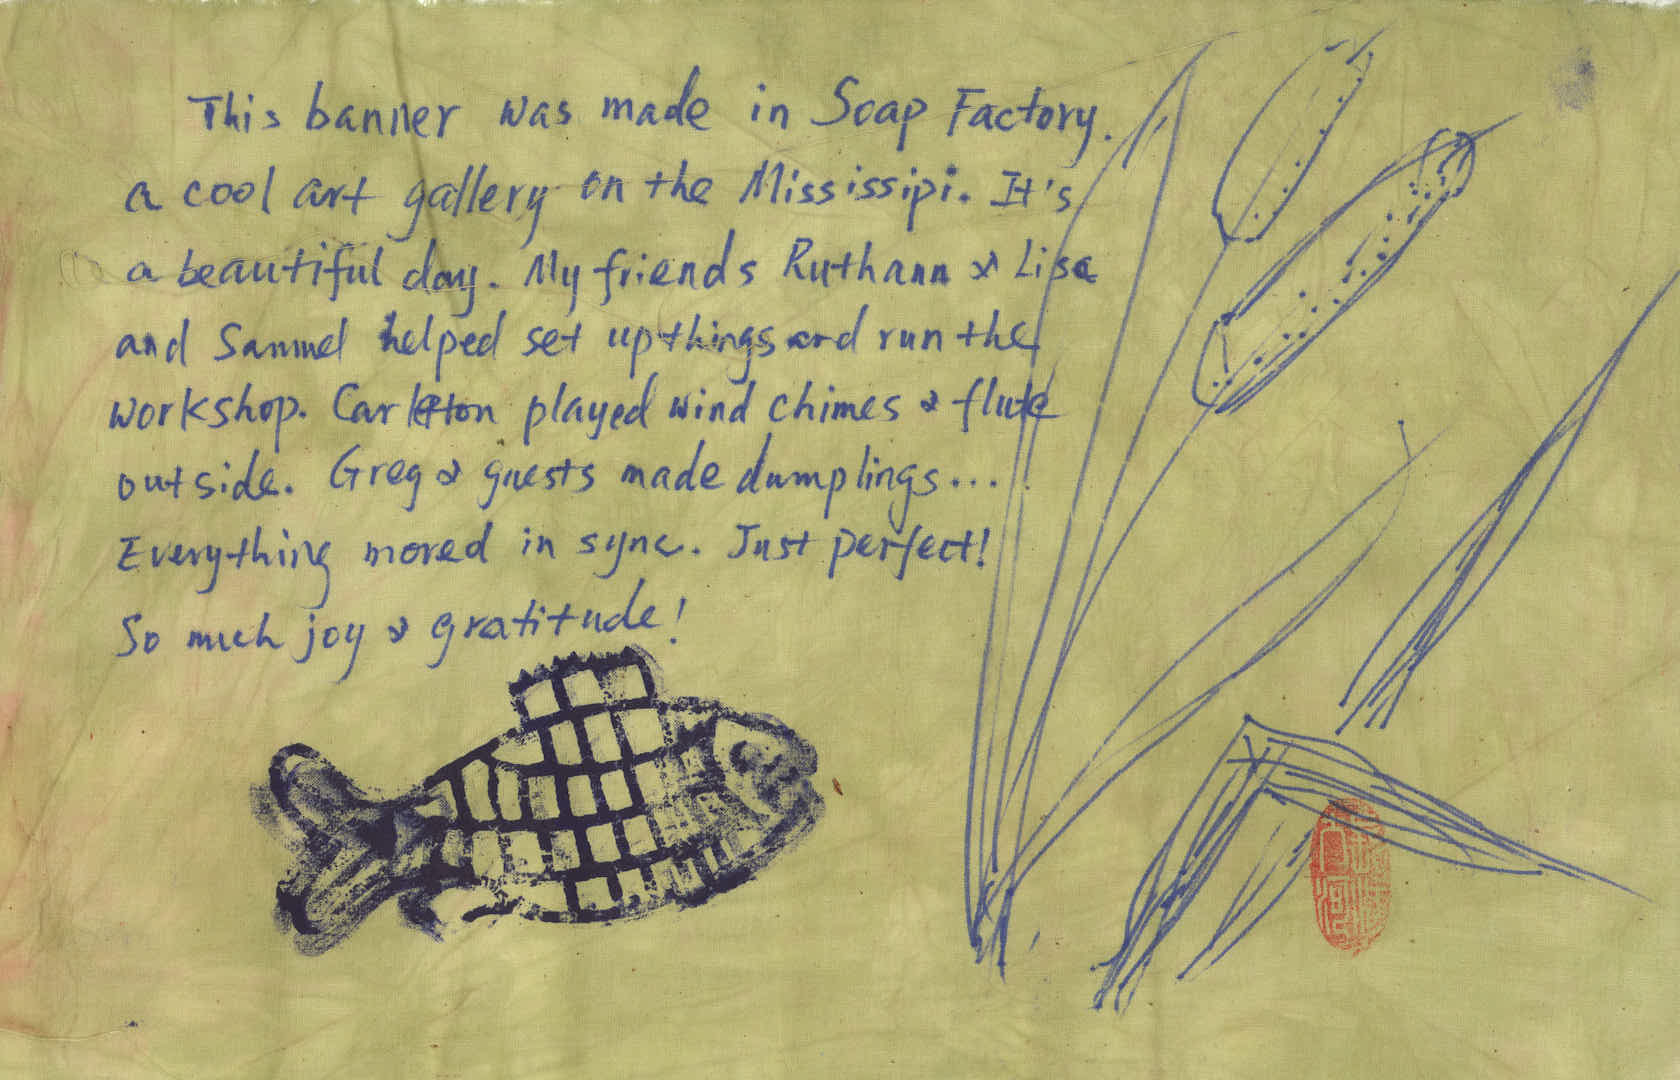 This banner was made in Soap Factory.
a cool art gallery on the Mississipi. It's
a beautiful day. My friends Ruthann & Lisa
and Sammel helped set up things and run the
workshop. Carleton played wind chimes & flute
outside. Greg & guests made dumplings...
Everything moved in sync. Just perfect!
So much joy & gratitude!